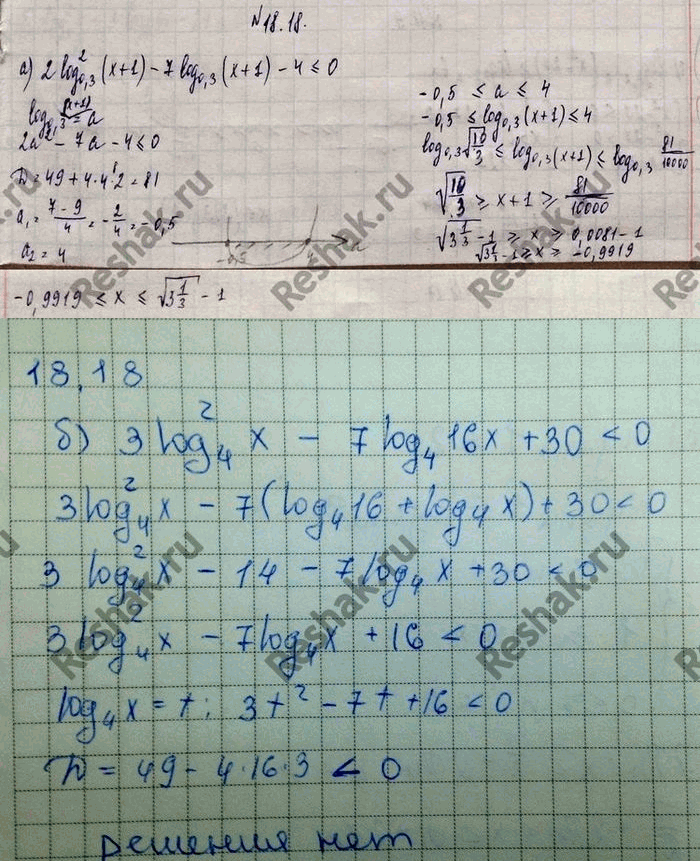 N18.18.
а) 2 log²₀,₃ (x+1) - 7 log₀,₃ (x+1) - 4 ≤ 0
log₀,₃ (x+1) = a
2a² - 7a - 4 ≤ 0
D = 49 + 4·4·2 = 81
a₁ = (7-9)/4 = -2/4 = -0,5
a₂ = 4
-0,5
4
a
-0,5 ≤ a ≤ 4
-0,5 ≤ log₀,₃ (x+1) ≤ 4
log₀,₃ √(10/3) ≤ log₀,₃ (x+1) ≤ log₀,₃ 81/10000
√(10/3) ≥ x+1 ≥ 81/10000
√(3 1/3) - 1 ≥ x ≥ 0,0081 - 1
√(3 1/3) - 1 ≥ x ≥ -0,9919
-0,9919 ≤ x ≤ √(3 1/3) - 1
18,18
б) 3 log²₄ x - 7 log₄ 16x + 30 < 0
3 log²₄ x - 7(log₄ 16 + log₄ x) + 30 < 0
3 log²₄ x - 14 - 7 log₄ x + 30 < 0
3 log²₄ x - 7 log₄ x + 16 < 0
log₄ x = t; 3t² - 7t + 16 < 0
D = 49 - 4·16·3 < 0
решения нет
Reshak.ru
Reshak.ru
Reshak.ru
Reshak.ru
Reshak.ru
Reshak.ru